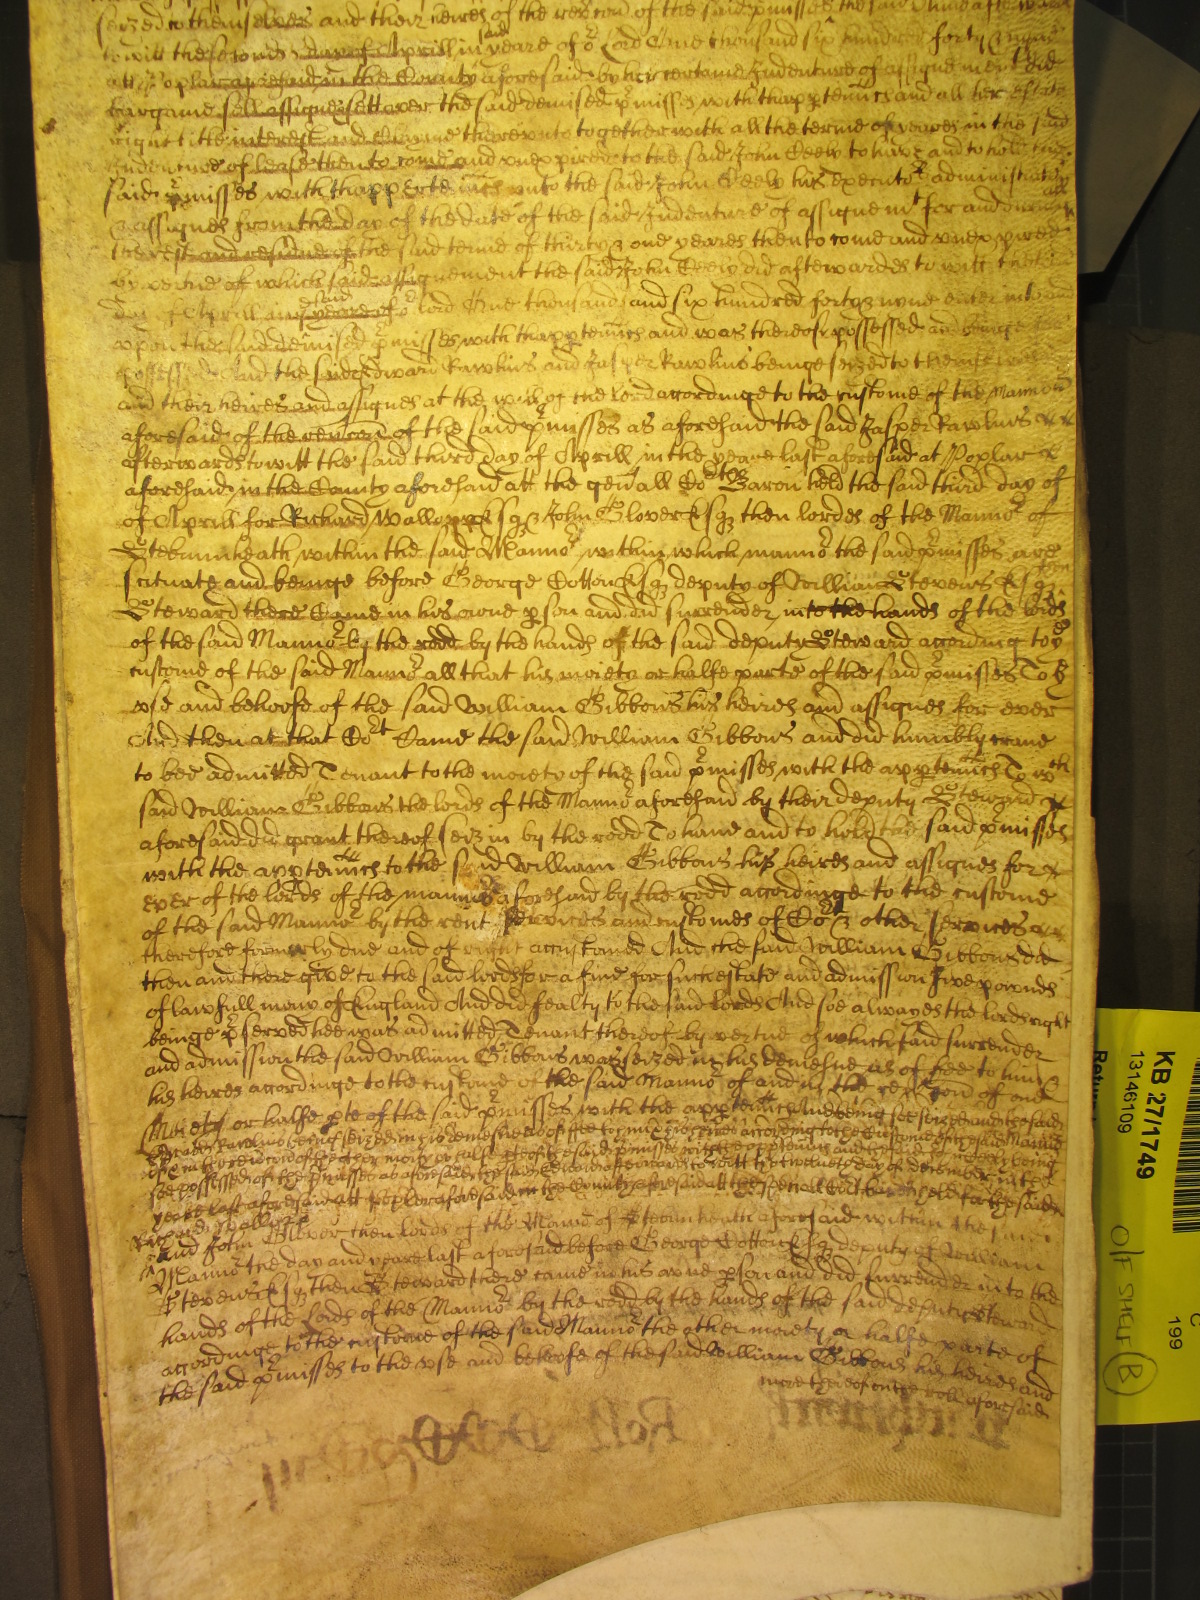 seized to themselves and their heires of the revercon of the said p'misses the said
to witt the second day of Aprill in the said yeare of o' Lord One thousand six hundred forty & nyne
att Poplar aforesaid in the County aforesaid by her certaine Indenture of assignement did
bargaine sell assigne & sett over the said demised p'misses with thapp'tenncs and all her estate
right title interest and terme thereunto together with all the terme of yeares in the said
Indenture of lease then to come and unexpired to the said John Seely to have and to hold the
said p'misses with thapp'tenncs unto the said John Seely his Executo's administrators
& assignes from the day of the date of the said Indenture of assignem't for and during all
the rest and residue of the said terme of thirty & one yeares then to come and unexpired
by vertue of which said assignement the said John Seely did afterwardes to witt the
day of Aprill in the said yeare of o' lord One thousand and six hundred forty & nyne enter into and
upon the said demised p'misses with thapp'tenncs and was thereof possessed and beinge soe
possessed And the said Edward Rawlins and Jasper Rawlins beinge seized to themselves
and their heires and assignes at the will of the lord accordinge to the custome of the Mannor
aforesaid of the revercon of the said p'misses as aforesaid the said Jasper Rawlins
afterwards to witt the said third day of Aprill in the yeare last aforesaid at Poplar
aforesaid in the County aforesaid att the gen'all Co'rt Baron held the said third day of
of Aprill for Richard Wallopp Esq & John Glover Esq then lordes of the Manno' of
Stebunheath within the said Manno' within which manno' the said p'misses are
scituate and beinge before George Cotton Esq deputy of William Stevens Esq then
Steward there Came in his owne p'son and did surrender into the hands of the lords
of the said Manno' by the rodd by the hands of the said deputy Steward according to ye
custome of the said Manno' all that his moiety or halfe parte of the said p'misses To ye
use and behoofe of the said William Gibbons his heires and assignes for ever
And then at that Co'rt Came the said William Gibbons and did humbly crave
to bee admitted Tenant to the moiety of the said p'misses with the app'tenncs To wch
said William Gibbons the lords of the Manno' aforesaid by their deputy Steward
aforesaid did grant thereof seizin by the rodd To have and to hold the said p'misses
with the app'tenncs to the said William Gibbons his heires and assignes for
ever of the lords of the manno' aforesaid by the rodd accordinge to the custome
of the said Manno' by the rent services and customes of Co'rt & other services
therefore formerly due and of right accustomed And the said William Gibbons did
then and there give to the said lords for a fine for such estate and admission five pownds
of lawfull mony of England And did fealty to the said lords And soe alwayes the lords right
beinge p'served hee was admitted Tenant thereof by vertue of which said surrender
and admission the said William Gibbons was seized in his demesne as of fee to him &
his heires accordinge to the custome of the said Manno' of and in the revercon of one
Moiety or halfe p'te of the said p'misses with the app'tenncs And being soe seized and the said
Edward Rawlins being seized in his demesne as of fee to him & his heires according to the Custome of the said Manno'
of & in the revercon of the other moity or halfe p'te of the said p'misses with the app'tenncs and the said John Seely being
soe possessed of the p'misses as aforesaid the said Edward afterwards to witt the twentieth day of december in the
yeare last aforesaid att Poplar aforesaid in the County aforesaid att the gen'all Court baron held for the said
Richard Wallopp
and John Glover then lords of the Manno' of Stebunheath aforesaid within the said
Manno' the day and yeare last aforesaid before George Cotton Esq deputy of William
Stevens Esq then Steward there came in his owne p'son and did surrender into the
hands of the Lords of the Manno' by the rodd by the hands of the said deputy Steward
accordinge to the custome of the said Manno' the other moiety or halfe parte of
the said p'misses to the use and behoofe of the said William Gibbons his heires and
more thereof on the roll aforesaid
KB 27/1749
13146109
C
199
off sheet (B)